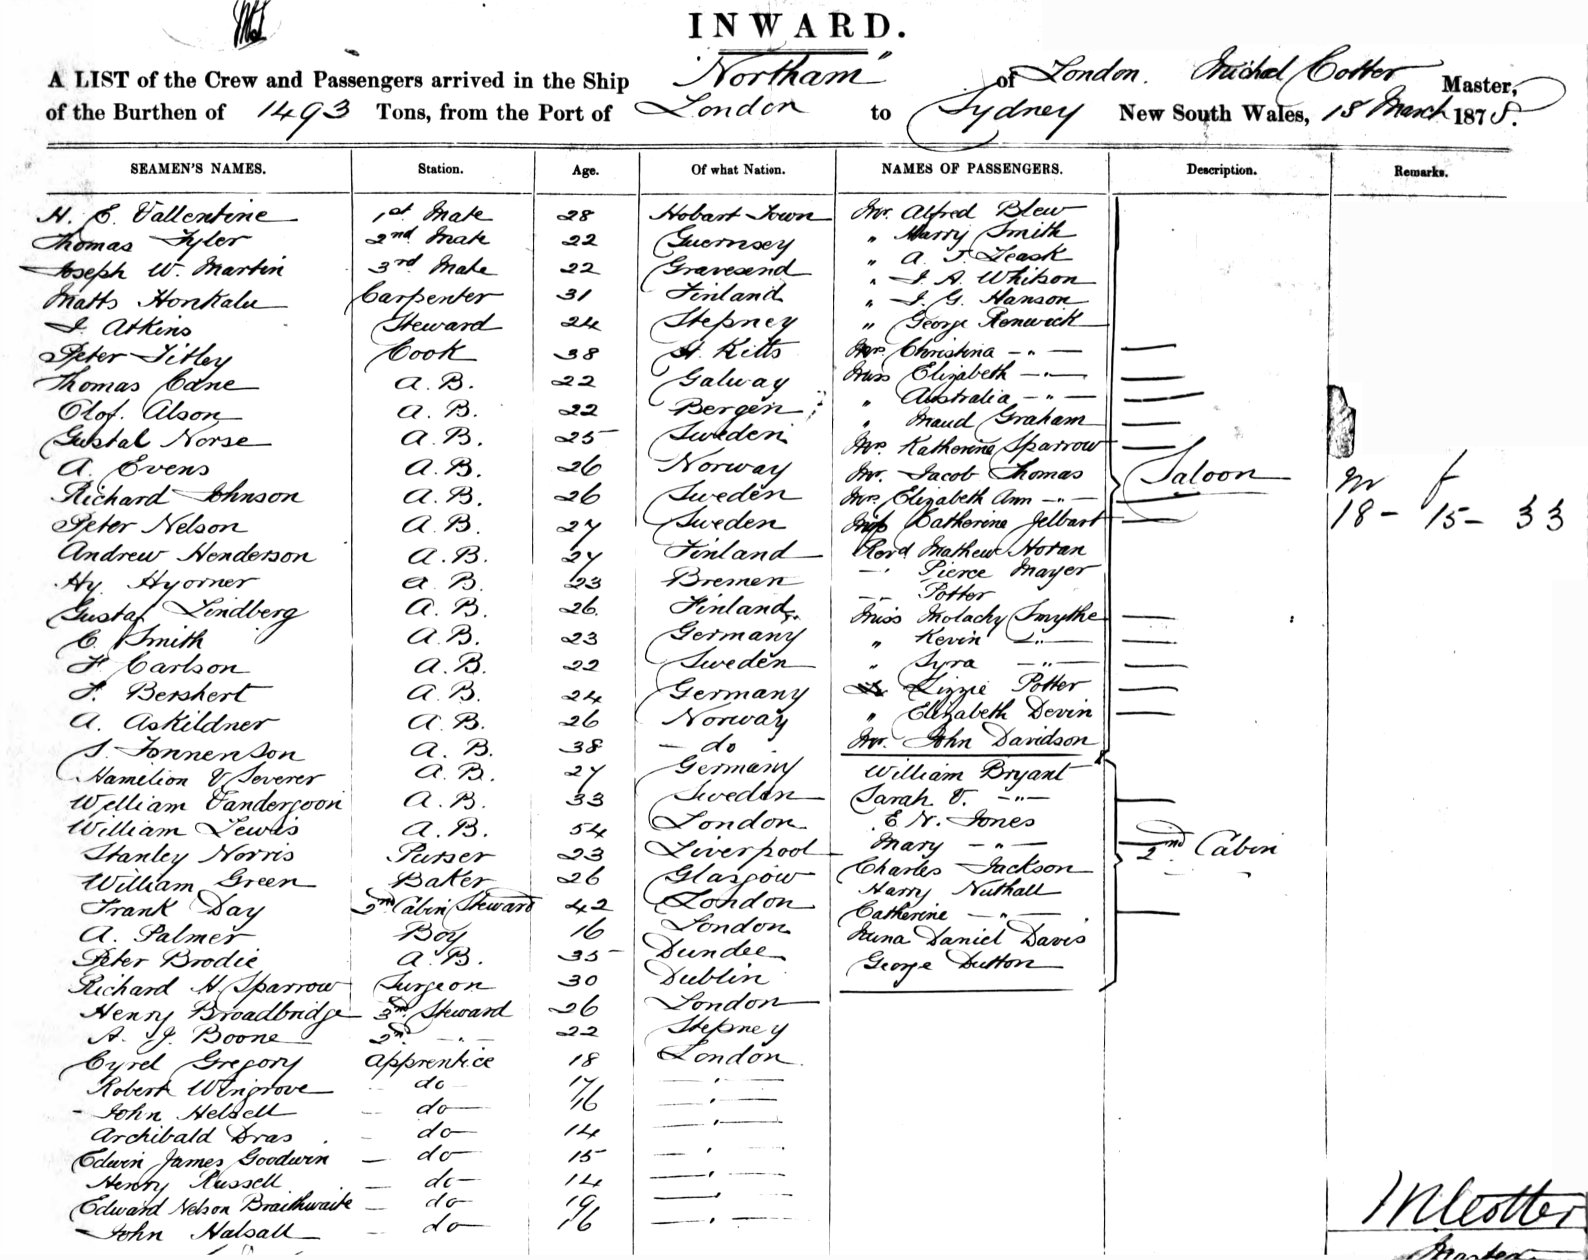 INWARD.
A LIST of the Crew and Passengers arrived in the Ship "Northam" of London. Michael Cotter Master,
of the Burthen of 1493 Tons, from the Port of London to Sydney New South Wales, 18 March 1878.
SEAMEN'S NAMES. Station. Age. Of what Nation. NAMES OF PASSENGERS. Description. Remarks.
H. E. Vallentine 1st Mate 28 Hobart Town Mr. Alfred Blew
Thomas Tyler 2nd Mate 22 Guernsey " Harry Smith
Joseph W. Martin 3rd Mate 22 Gravesend " A. J. Leask
Matts Honkalu Carpenter 31 Finland " J. A. Whitson
J. Atkins Steward 24 Stepney " J. G. Hanson
Peter Titley Cook 38 St. Kitts " George Renwick
Thomas Cane A.B. 22 Galway Mrs. Christina - " -
Olof. Alson A.B. 22 Bergen Miss Elizabeth - " -
Gustal Norse A.B. 25 Sweden " Australia - " -
A. Evens A.B. 26 Norway " Maud Graham
Richard Johnson A.B. 26 Sweden Mrs. Katherine Sparrow
Peter Nelson A.B. 27 Sweden Mr. Jacob Thomas Saloon
Andrew Henderson A.B. 27 Finland Mrs. Elizabeth Ann - " - m f
Hy. Hyorner A.B. 23 Bremen Miss Catherine Jelbart 18 - 15 - 33
Gustaf Lindberg A.B. 26 Finland Revd Mathew Horan
C. Smith A.B. 23 Germany - " Pierce Mayer
F. Carlson A.B. 22 Sweden - - Potter
F. Bershert A.B. 24 Germany Miss Molachy Smythe
A. Askildner A.B. 26 Norway " Kevin - " -
S. Tonnenson A.B. 38 - do " Syra - " -
Hamelion V. Severer A.B. 27 Germany Lizzie Potter
William Vandergoon A.B. 33 Sweden " Elizabeth Devin
William Lewis A.B. 54 London Mr. John Davidson
Stanley Norris Purser 23 Liverpool William Bryant
William Green Baker 26 Glasgow Sarah V. - " -
Frank Day 2nd Cabin Steward 42 London E. N. Jones
A. Palmer Boy 16 London Mary - " - 2nd Cabin
Peter Brodie A.B. 35 Dundee Charles Jackson
Richard H Sparrow Surgeon 30 Dublin Harry Nuthall
Henry Broadbridge 3rd Steward 26 London Catherine - " -
A. J. Boone 2nd - " - 22 Stepney Daniel Davis
Cyrel Gregory Apprentice 18 London George Dutton
Robert Wingrove do 17 - " -
John Helsell - do 16 - " -
Archibald Dras - do 14 - " -
Edwin James Goodwin - do 15 - " -
Henry Russell - do 14 - " -
Edward Nelson Braithwaite - do 19 - " -
John Halsall - do 16 - " -
M Cotter
Master